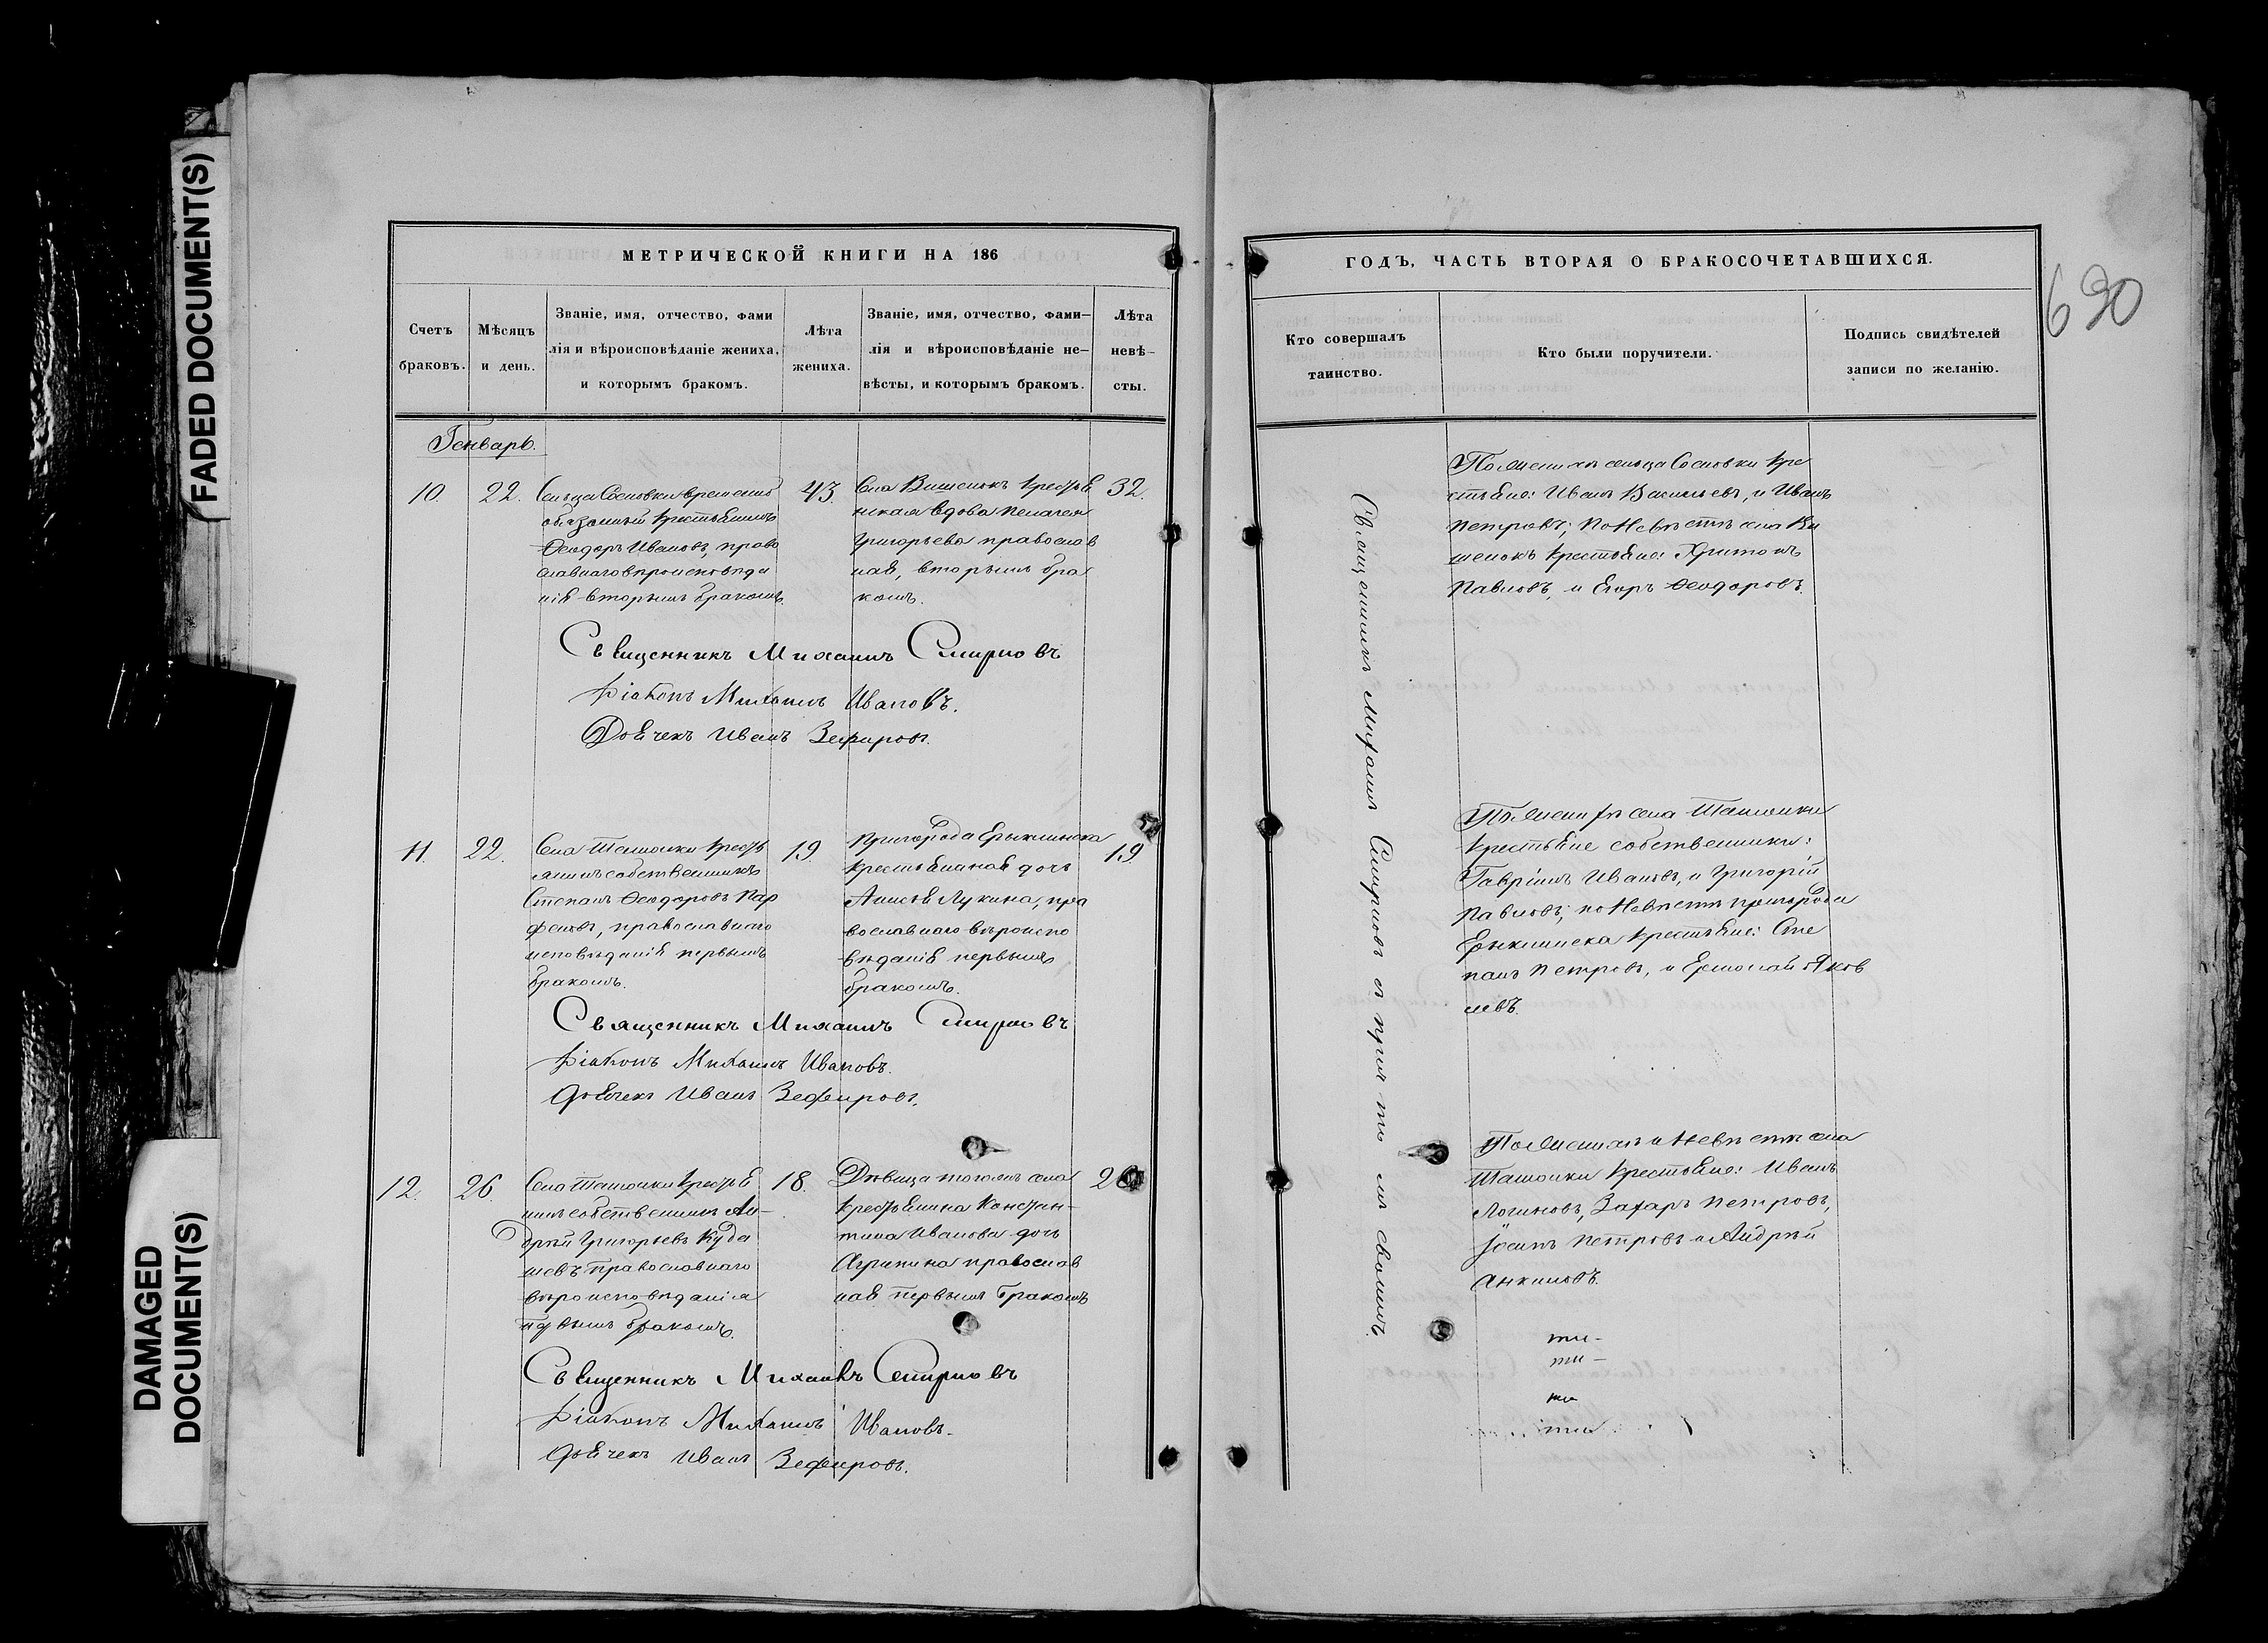 FADED DOCUMENT(S)
DAMAGED
DOCUMENT(S)
МЕТРИЧЕСКОЙ КНИГИ НА 186
Счетъ
браковъ.
Мѣсяцъ
и день.
Званіе, имя, отчество, фами
лія и вѣроисповѣданіе жениха,
и которымъ бракомъ.
Лѣта
жениха.
Званіе, имя, отчество, фами—
лія и вѣроисповѣданіе не—
вѣсты, и которымъ бракомъ.
Лѣта
невѣ—
сты.
Генварь.
10.
22.
Сельца Сосновки временно
обязанный крестьянинъ
Ѳеодоръ Ивановъ, право
славнаго вѣроисповѣда
нія вторымъ бракомъ.
43.
Села Вишенокъ крестья
нская вдова Пелагея
Григорьева православ
ная, вторымъ бра
комъ.
32.
Священникъ Михаилъ Смирновъ
Діаконъ Михаилъ Ивановъ.
Дьячекъ Иванъ Зефировъ.
11.
22.
Села Ташолки кресть
янинъ собственникъ
Степанъ Ѳеодоровъ Пар
феновъ, православнаго
исповѣданія первымъ
бракомъ.
19
Пригорода Ерыклинска
крестьяниная дочь
Лукина, пра
вославнаго вѣроиспо
вѣданія первымъ
бракомъ.
19
Священникъ Михаилъ Смирновъ
Діаконъ Михаилъ Ивановъ.
Дьячекъ Иванъ Зефировъ.
12.
26.
Села Ташолки крестья
нинъ собственникъ Ан—
дрей Григорьевъ Куда
шевъ православнаго
вѣроисповѣданія
первымъ бракомъ.
18.
Дѣвица тогожъ села
крестьянина Констан—
тина Иванова дочь
Агрипина православ
ная первымъ бракомъ
Священникъ Михаилъ Смирновъ
Діаконъ Михаилъ Ивановъ.
Дьячекъ Иванъ Зефировъ.
ГОДЪ, ЧАСТЬ ВТОРАЯ О БРАКОСОЧЕТАВШИХСЯ.
690
Кто совершалъ
таинство.
Кто были поручители.
Подпись свидѣтелей
записи по желанію.
Священникъ Михаилъ Смирновъ съ причтомъ своимъ.
По женихѣ сельца Сосновки кре
стьяне: Иванъ Васильевъ, и Иванъ
Петровъ; по невѣстѣ села Ви
шенокъ крестьяне: Харитонъ
Павловъ, и Егоръ Ѳеодоровъ.
По женихѣ села Ташолки
крестьяне собственники:
Гавріилъ Ивановъ, и Григорій
Павловъ; по невѣстѣ пригорода
Ерыклинска крестьяне: Сте
панъ Петровъ, и Ермолай Яков
левъ.
По женихѣ и невѣстѣ села
Ташолки крестьяне: Иванъ
Логиновъ, Захаръ Петровъ,
Іосипъ Петровъ и Андрей